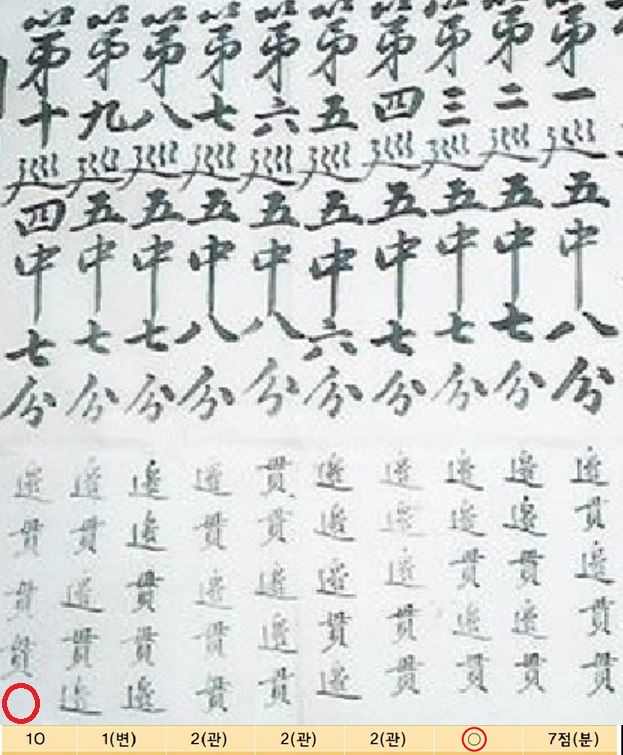 第一巡五中八分 邊貫邊貫貫
第二巡五中七分 邊邊貫邊貫
第三巡五中七分 邊邊貫邊貫
第四巡五中七分 邊邊邊貫貫
第五巡五中六分 邊邊邊貫邊
第六巡五中八分 貫貫邊邊貫
第七巡五中八分 邊貫邊貫貫
第八巡五中七分 邊邊貫貫邊
第九巡五中七分 邊貫邊貫邊
第十巡四中七分 邊貫貫貫
10 1(변) 2(관) 2(관) 2(관) ○ 7점(분)